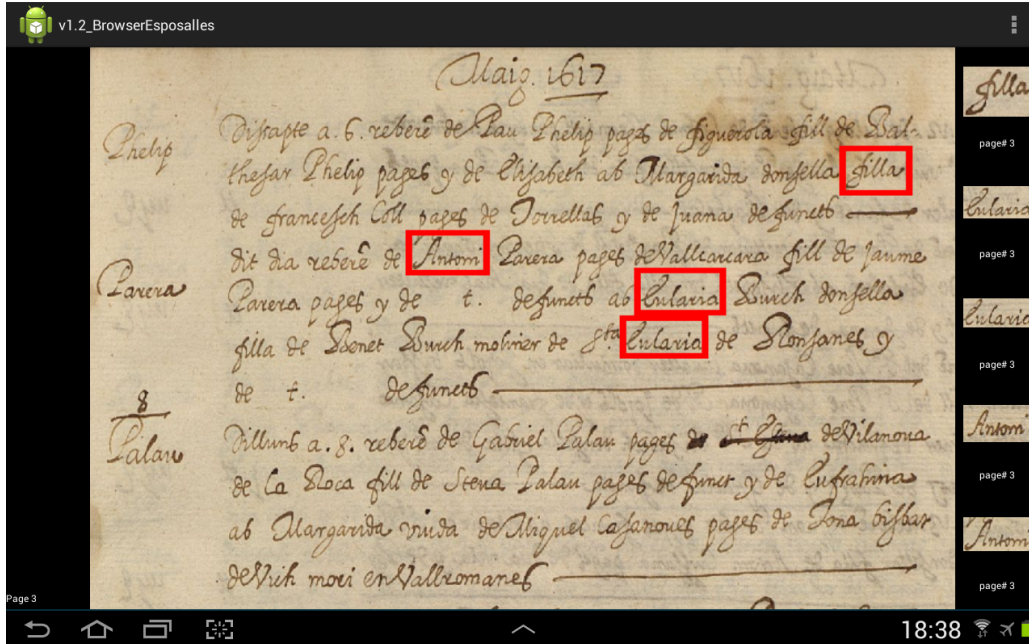 v1.2_BrowserEsposalles
Maig. 1617
Phelip
Dissapte a. 6. reberé de Pau Phelip pages de figuerola fill de Bal-
thesar Phelip pages y de Elisabeth ab Margarida donsella filla
de francesch Coll pages de Torrellas y de Juana defuncts
Parera
dit dia reberé de Antoni Parera pages de Vallcarcara fill de Jaume
Parera pages y de t. defuncts ab Eularia Burch donsella
filla de Benet Burch moliner de Sta. Eularia de Ronsanes y
de t. defuncts
8
Palau
Dilluns a. 8. reberé de Gabriel Palau pages de Vilanova
de la Roca fill de Steva Palau pages defunct y de Eufrahina
ab Margarida viuda de Miquel Casanoves pages de Dona
de Vich mori en Vallromanes
filla
page# 3
Eularia
page# 3
Eularia
page# 3
Antoni
page# 3
Antoni
page# 3
Page 3
18:38